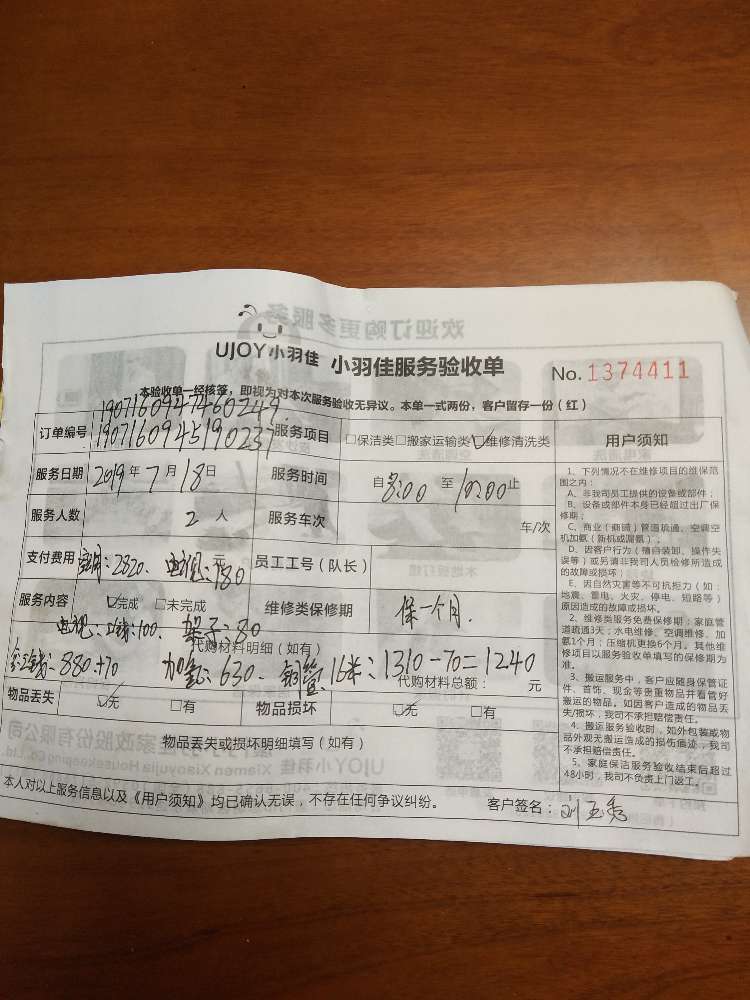 欢迎订购更多服务
UJOY小羽佳 小羽佳服务验收单 No. 1374411
本验收单一经核签，即视为对本次服务验收无异议。本单一式两份，客户留存一份（红）
1907160947460249
订单编号 1907160945190237 服务项目 □保洁类□搬家运输类☑维修清洗类
服务日期 2019年7月18日 服务时间 自8:00至10:00止
服务人数 2人 服务车次 车/次
支付费用 2820、电视:180 元 员工工号（队长）
服务内容 ☑完成 □未完成 维修类保修期 保一个月.
电视:工钱:100、架子:80
代购材料明细（如有）
工钱:880+70 加氟:630、铜管16米:1310-70=1240
代购材料总额： 元
物品丢失 ☑无 □有 物品损坏 ☑无 □有
物品丢失或损坏明细填写（如有）
本人对以上服务信息以及《用户须知》均已确认无误，不存在任何争议纠纷。 客户签名：刘玉秀
用户须知
1、下列情况不在维修项目的维保范
围之内：
A、非我司员工提供的设备或部件；
B、设备或部件本身已经超过出厂保
修期；
C、商业（商铺）管道疏通、空调空
机加氨（新机或漏氨）；
D、因客户行为（擅自装卸、操作失
误等）或另请非我司人员检修所造成
的故障或损坏；
E、因自然灾害等不可抗拒力（如：
地震、雷电、火灾、停电、短路等）
原因造成的故障或损坏。
2、维修类服务免费保修期：家庭管
道疏通3天；水电维修、空调维修、加
氨1个月；压缩机更换6个月。其他维
修项目以服务验收单填写的保修期为
准。
3、搬运服务中，客户应随身保管证
件、首饰、现金等贵重物品并看管好
搬运的物品。如因客户造成的物品丢
失/损坏，我司不承担赔偿责任。
4、搬运服务验收时，如外包装或物
品外观无搬运造成的损伤痕迹，我司
不承担赔偿责任。
5、家庭保洁服务验收结束后超过
48小时，我司不负责上门返工。